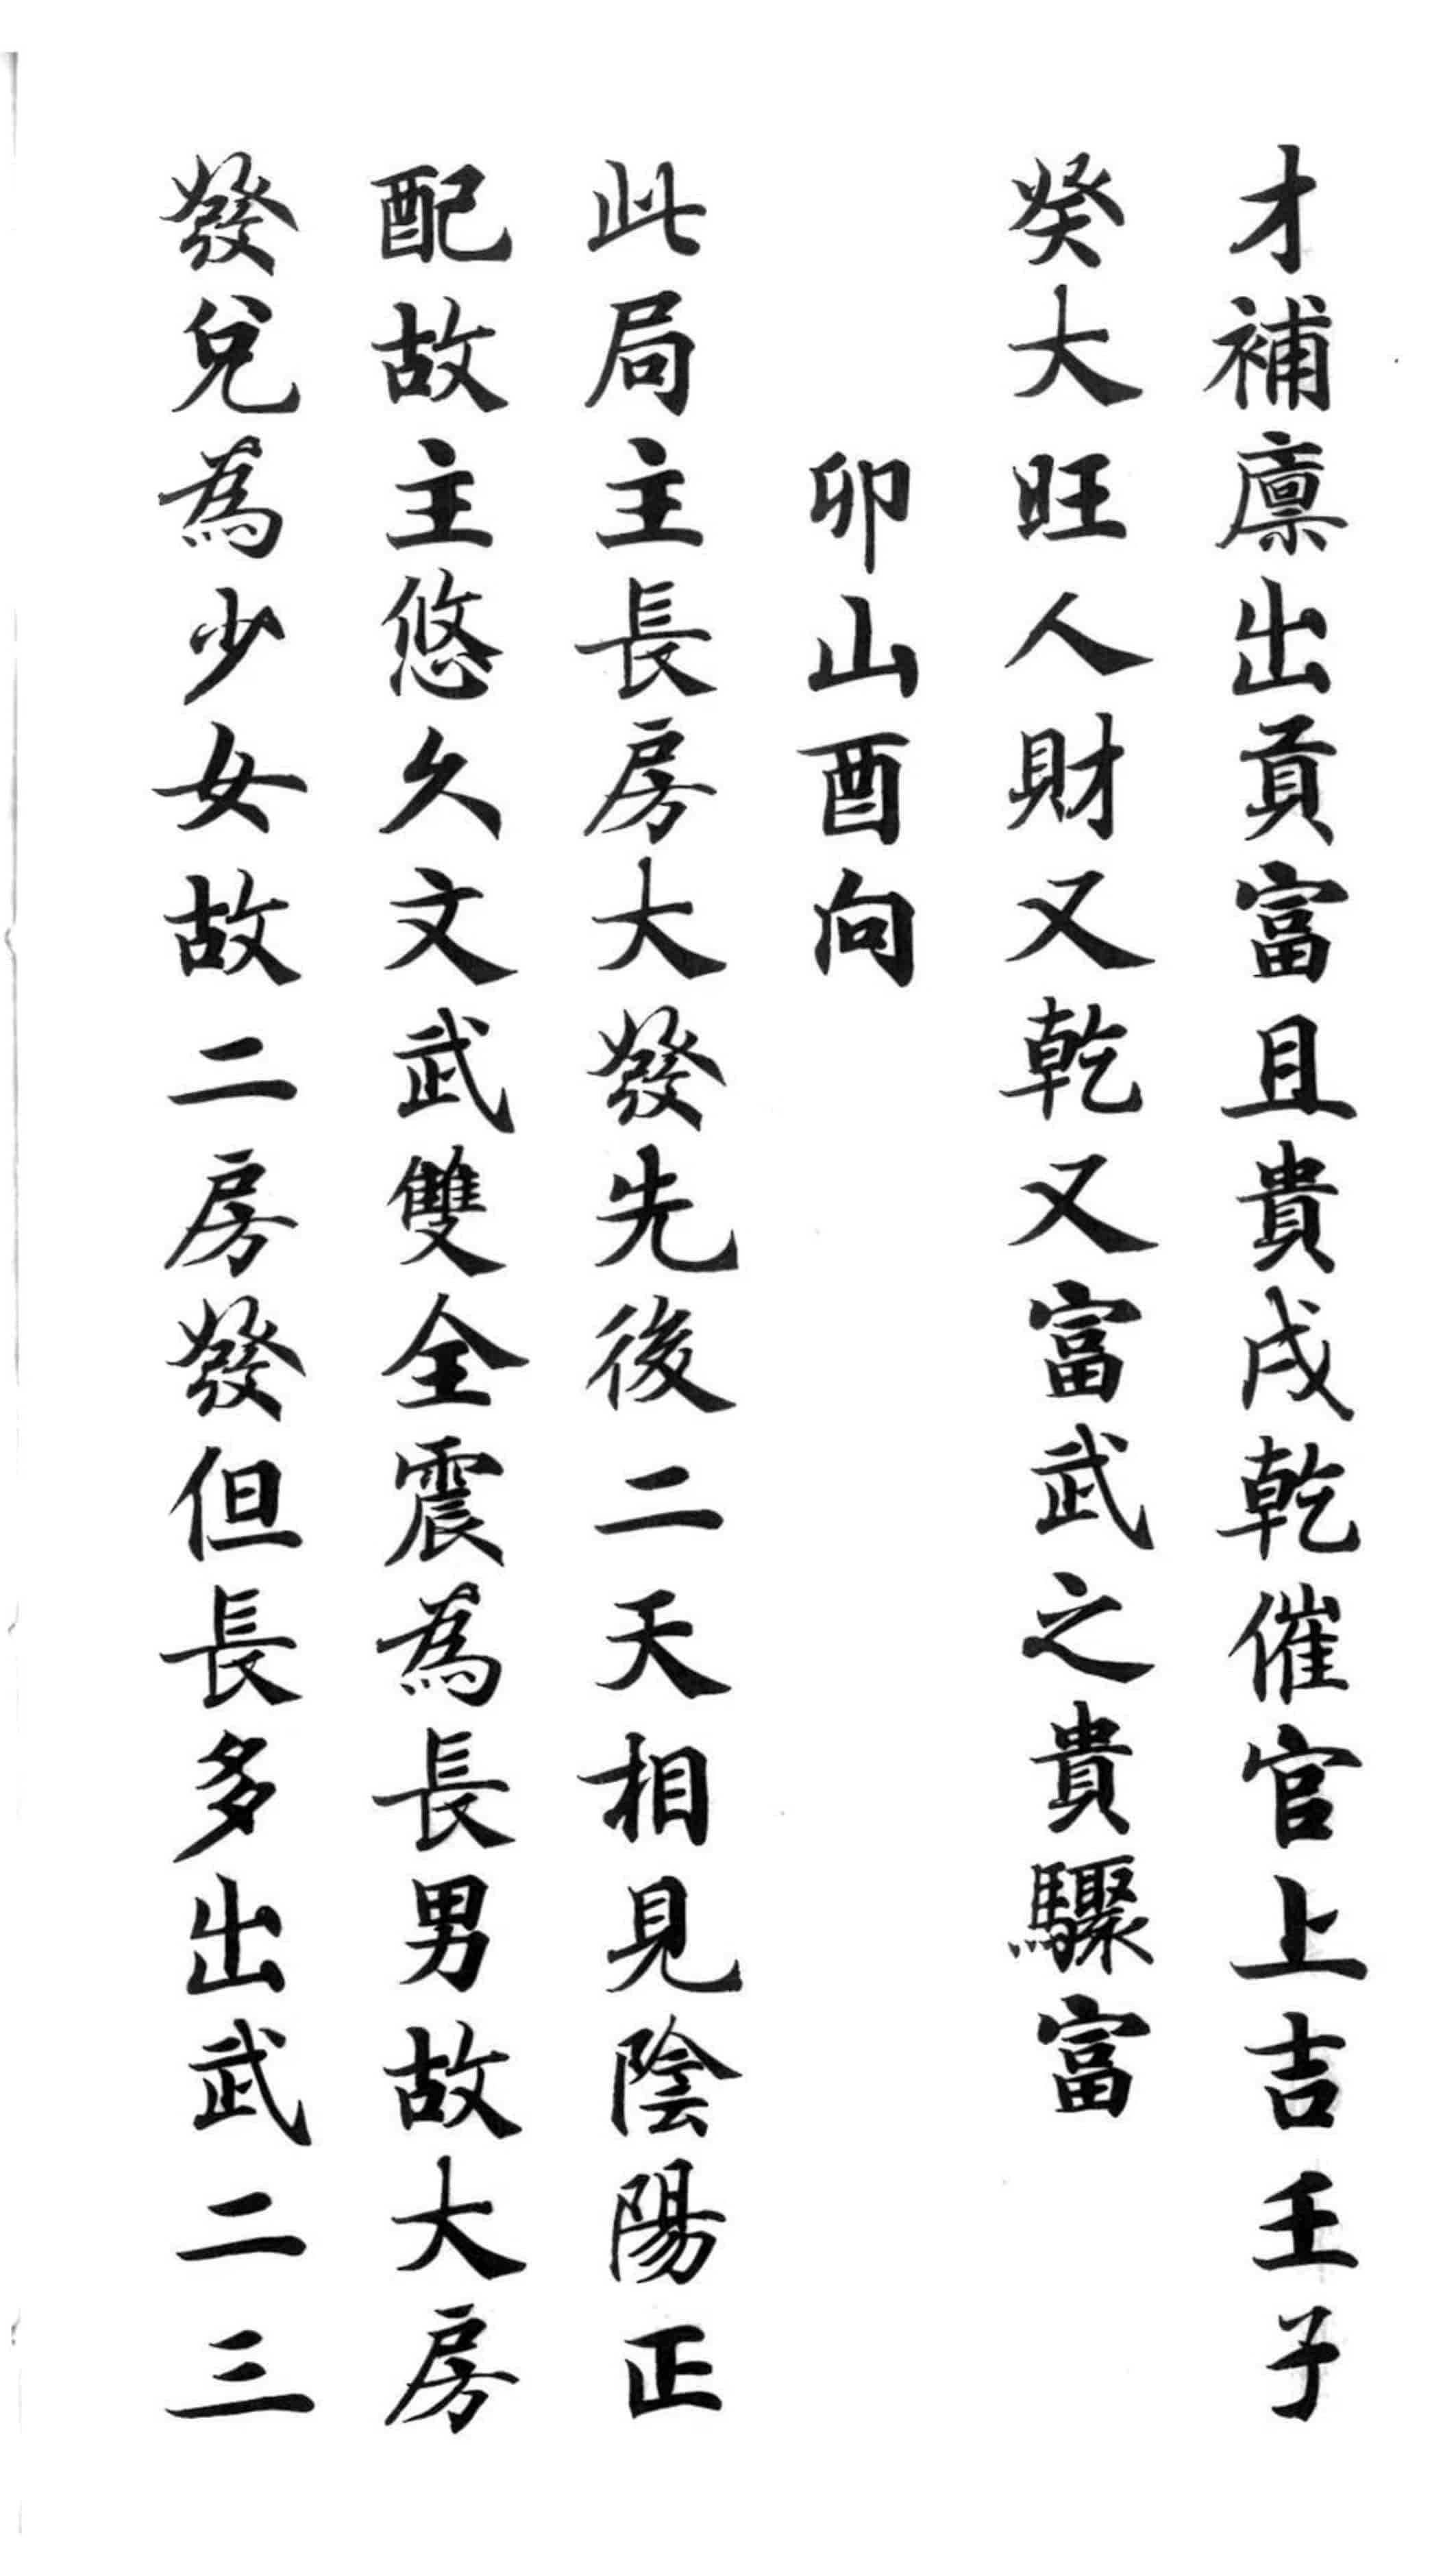 才補廪出貢富且貴戌乾催官上吉壬子
癸大旺人財又乾又富武之貴驟富
卯山酉向
此局主長房大發先後二天相見陰陽正
配故主悠久文武雙全震為長男故大房
發兌為少女故二房發但長多出武二三